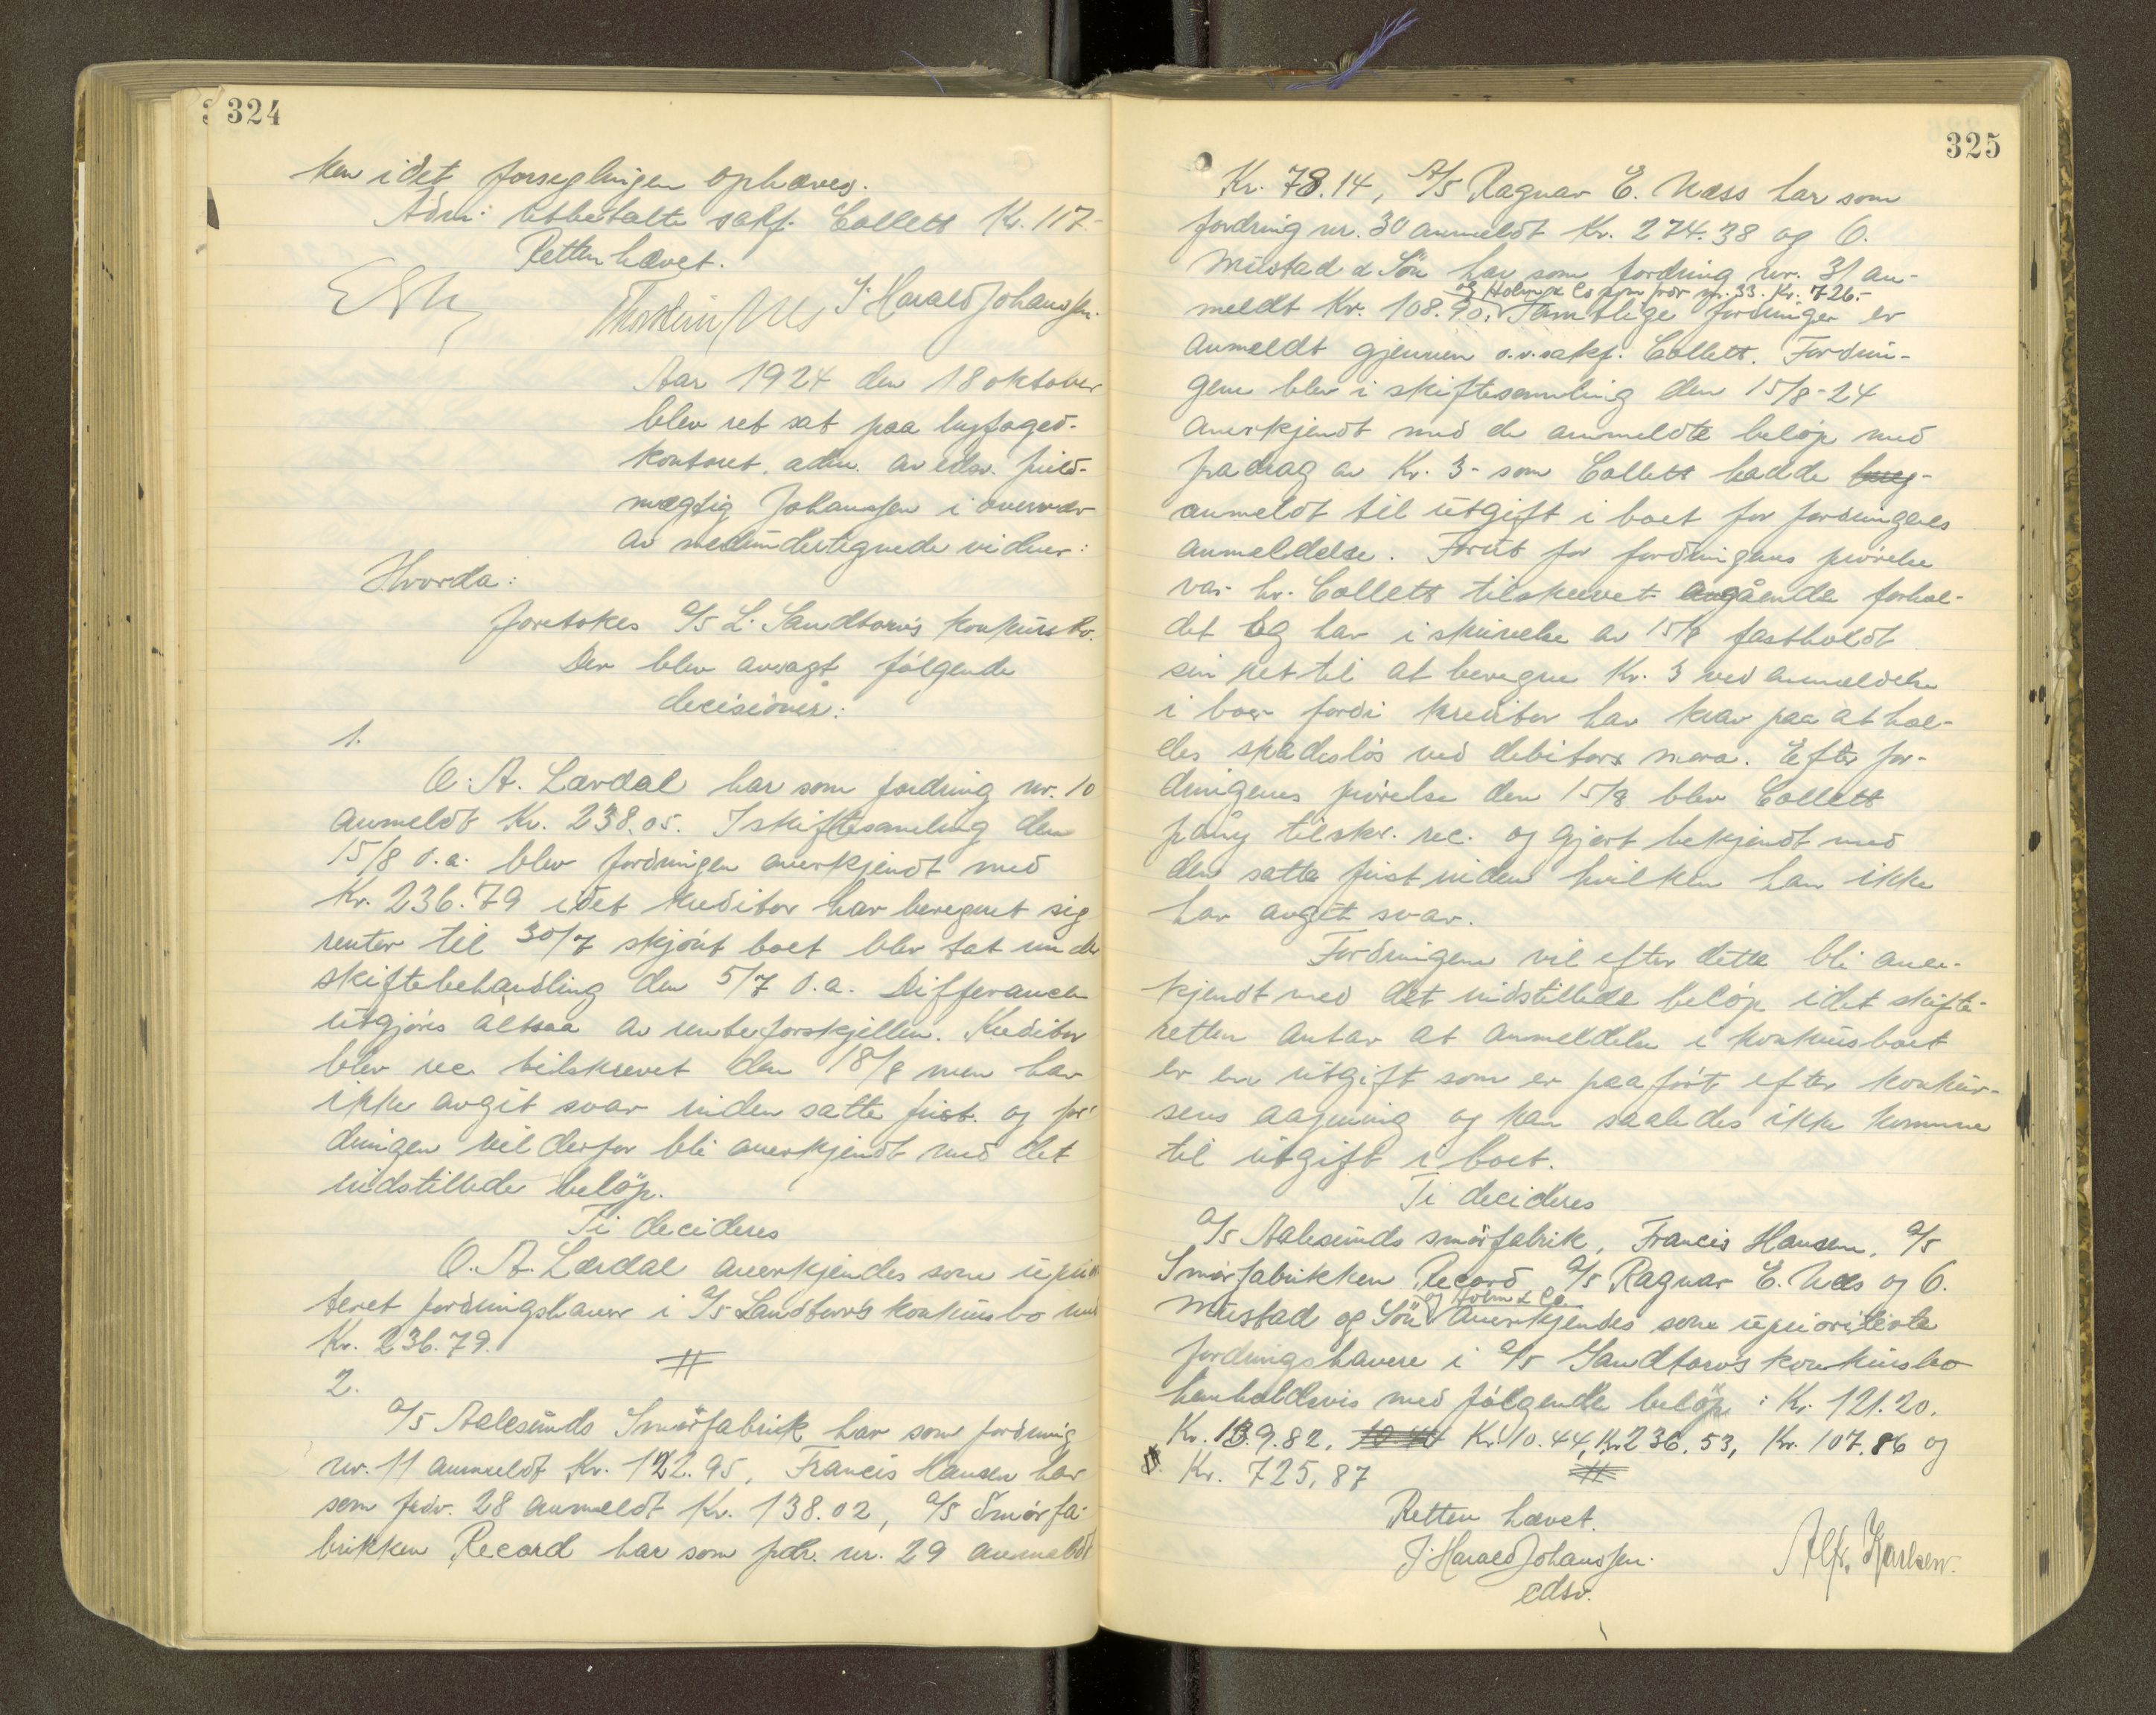 324
ken idet forseglingen ophæves.
Adm: utbetalte sakf. Collett Kr. 117.-
Retten hævet.
J. Harald Johanssen.
Aar 1924 den 18 oktober
blev ret sat paa byfoged-
kontoret, adm. av edsv. fuld-
mægtig Johanssen i overvær
av nedundertegnede vidner:
Hvorda:
foretokes A/S L. Sandtorvs konkursbo.
Der blev avsagt følgende
decisioner:
1.
O. A. Lærdal har som fordring nr. 10
anmeldt Kr. 238.05. I skiftesamling den
15/8 d.a. blev fordringen anerkjendt med
Kr. 236.79 idet kreditor har beregnet sig
renter til 30/7 skjønt boet blev tat under
skiftebehandling den 5/7 d.a. Differancen
utgjøres altsaa av renteforskjellen. Kreditor
blev rec. tilskrevet den 18/8 men har
ikke avgit svar inden satte frist og for-
dringen vil derfor bli anerkjendt med det
indstillede beløp.
Ti decideres
O. A. Lærdal anerkjendes som uprior
teret fordringshaver i A/S Sandtorvs konkursbo med
Kr. 236.79.
2.
A/S Aalesunds Smørfabrik har som fordring
nr. 11 anmeldt Kr. 122.95, Francis Hansen har
som fordr. 28 anmeldt Kr. 138.02, A/S Smørfa-
brikken Record har som fdr. nr. 29 anmeldt
325
Kr. 78.14, A/S Ragnar E. Næss har som
fordring nr. 30 anmeldt Kr. 274.38 og O.
Mustad & Sön har som fordring nr. 31 an-
og Holm & Co som fror nr. 33. Kr. 726.-
meldt Kr. 108.90. Samtlige fordringer er
anmeldt gjennem o.r.sakf. Collett. Fordrin-
gene blev i skiftesamling den 15/8-24
anerkjendt med de anmeldte beløp med
fradrag av Kr. 3- som Collett hadde
anmeldt til utgift i boet for fordringenes
anmeldelse. Forut for fordringens prøvelse
var hr. Collett tilskrevet angående forhol-
det og har i skrivelse av 15/8 fastholdt
sin ret til at beregne Kr. 3 ved anmeldelse
i boer fordi kreditor har krav paa at hol-
des skadesløs ved debitors mora. Efter for-
dringenes prøvelse den 15/8 blev Collett
påny tilskr. rec. og gjort bekjendt med
den satte frist inden hvilken han ikke
har avgit svar.
Fordringene vil efter dette bli aner-
kjendt med det indstillede beløp idet skifte-
retten antar at anmeldelse i konkursboet
er en utgift som er paaført efter konkur-
sens aapning og kan saaledes ikke komme
til utgift i boet.
Ti decideres
A/S Aalesunds smørfabrik, Francis Hansen, A/S
Smørfabrikken Record A/S Ragnar E. Næs og O.
og Holm & Co
Mustad og Sön anerkjendes som uprioriterte
fordringshavere i A/S Sandtorvs konkursbo
henholdsvis med følgende beløp: Kr. 121.20.
Kr. 139.82, 10 44 Kr. 10.44, Kr. 236.53, Kr. 107.86 og
Kr. 725,87
Retten hævet.
J. Harald Johanssen.
edsv.
Alfr. Karlsen.